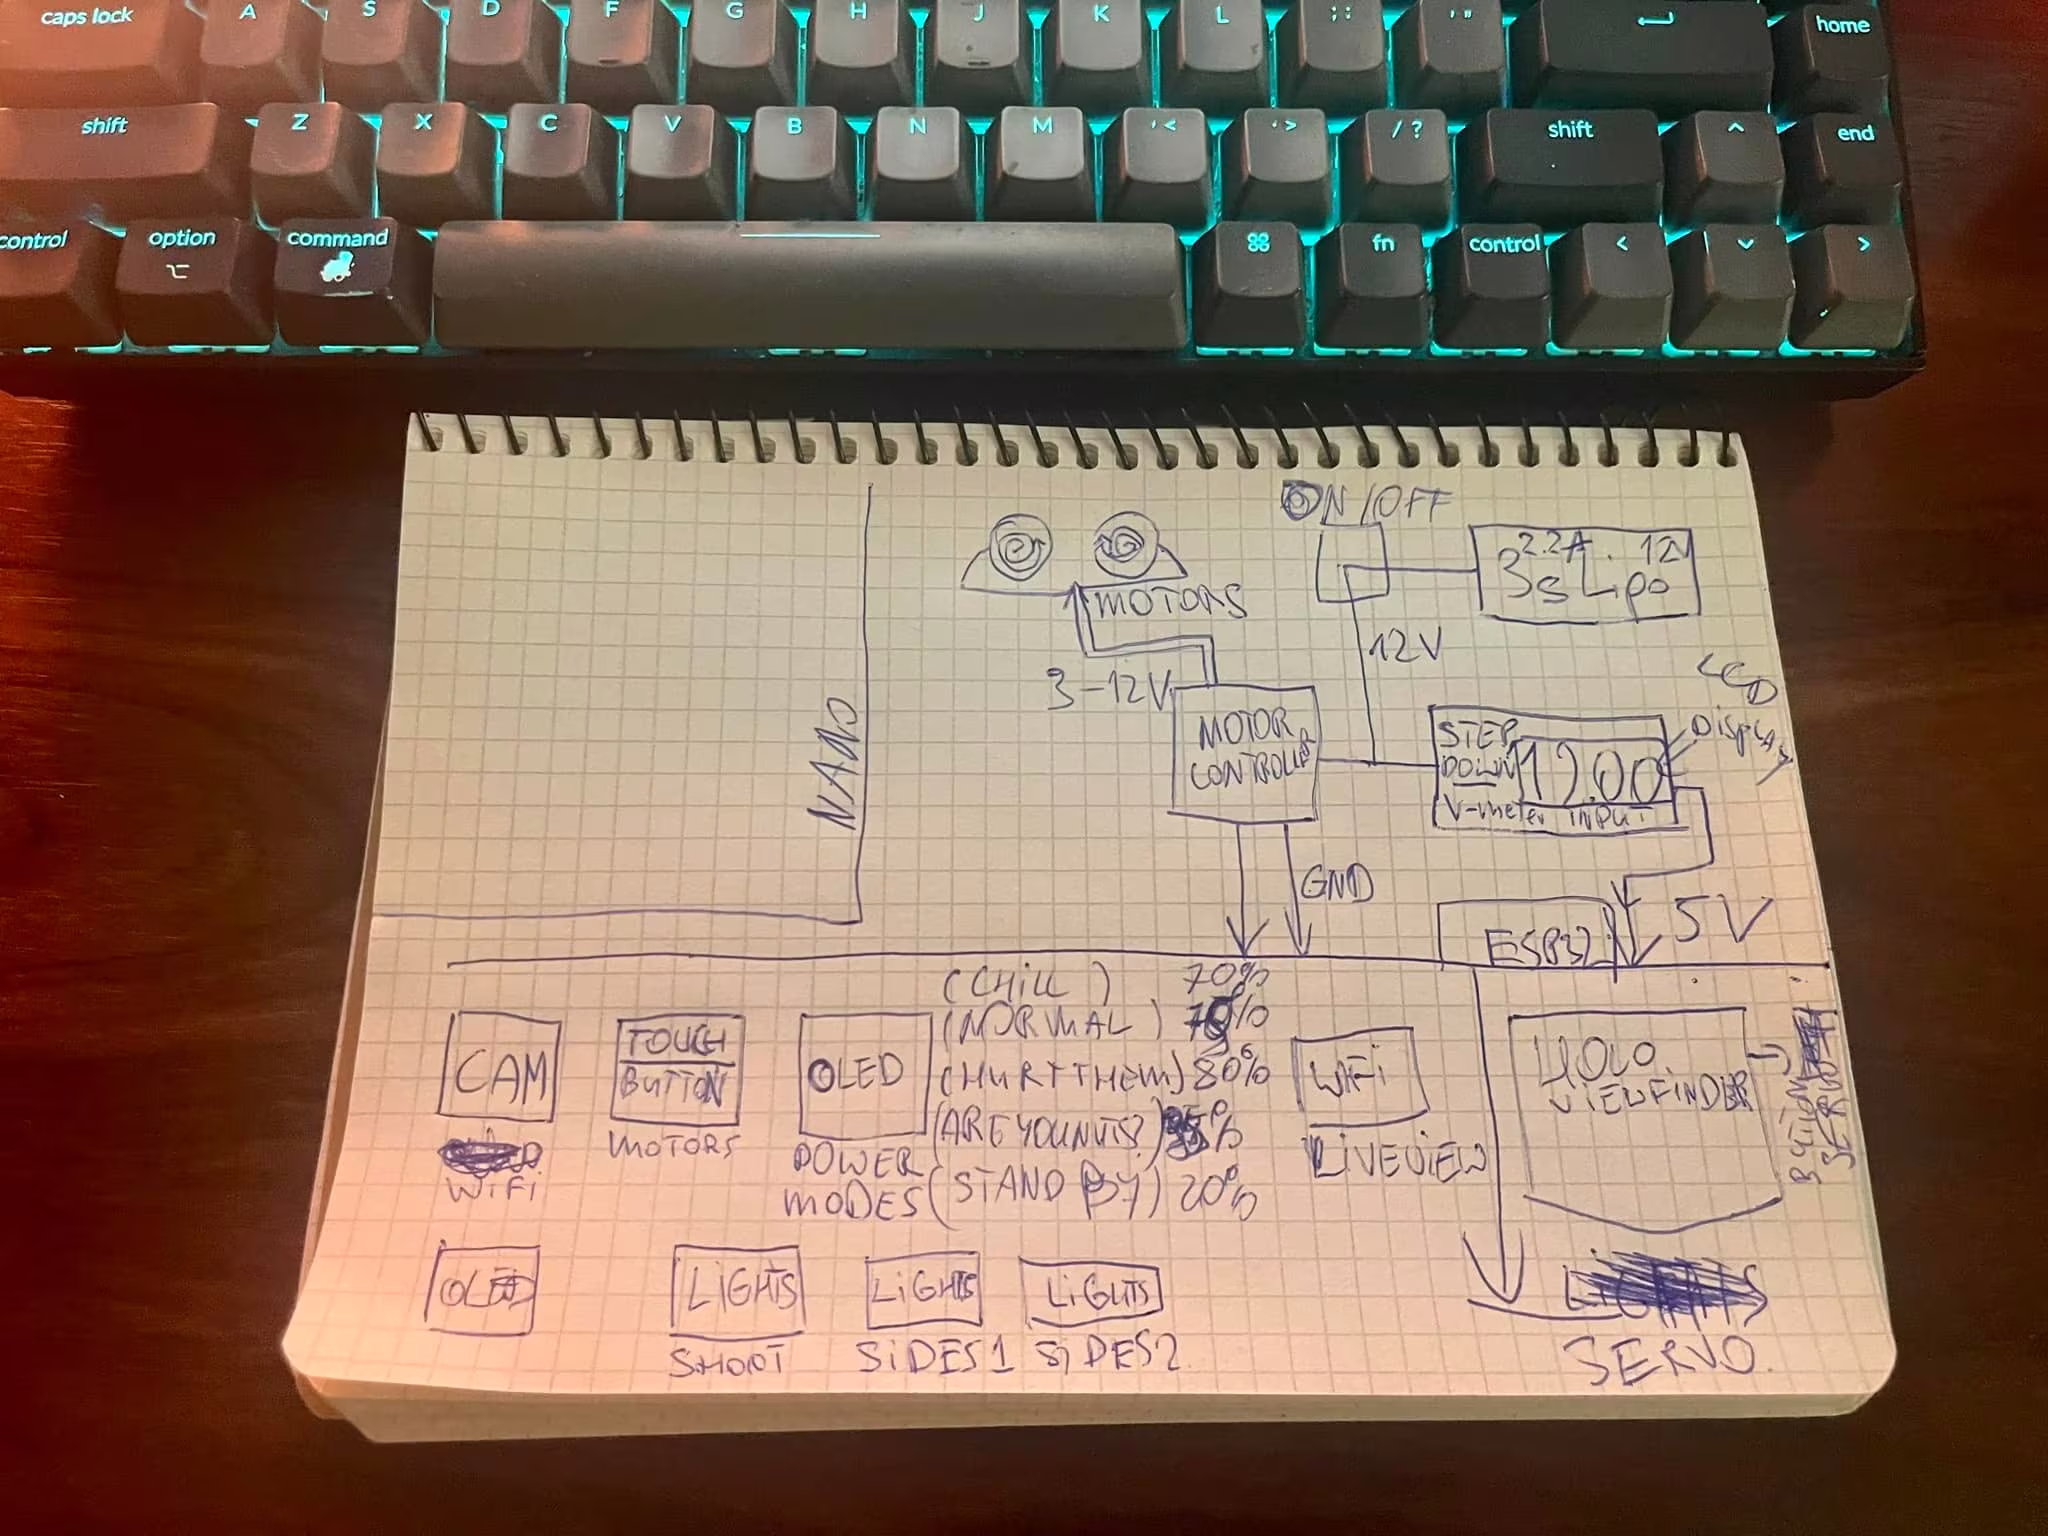 caps lock A S D F G H J K L ; : ' " home
shift Z X C V B N M ' < ' > / ? shift ^ end
control option command ⌘ fn control < v >
ON/OFF
2.2A. 12V
3s Lipo
MOTORS
12V
3-12V
LCD
DISPLAY
MOTOR
CONTROLLER
STEP
DOWN
12.00
V-meter INPUT
NANO
GND
5V
ESP32
(CHILL) 70%
(NORMAL)
(HURT THEM) 80%
(ARE YOU NUTS?)
(STAND BY) 20%
CAM
WiFi
TOUCH
BUTTON
MOTORS
OLED
POWER
MODES
WiFi
LIVEVIEW
HOLO
VIEWFINDER
BUTTON
SERVO
OLED
LiGHTS
SHOOT
LiGHTS
SiDES1
LiGHTS
SiDES2
SERVO.